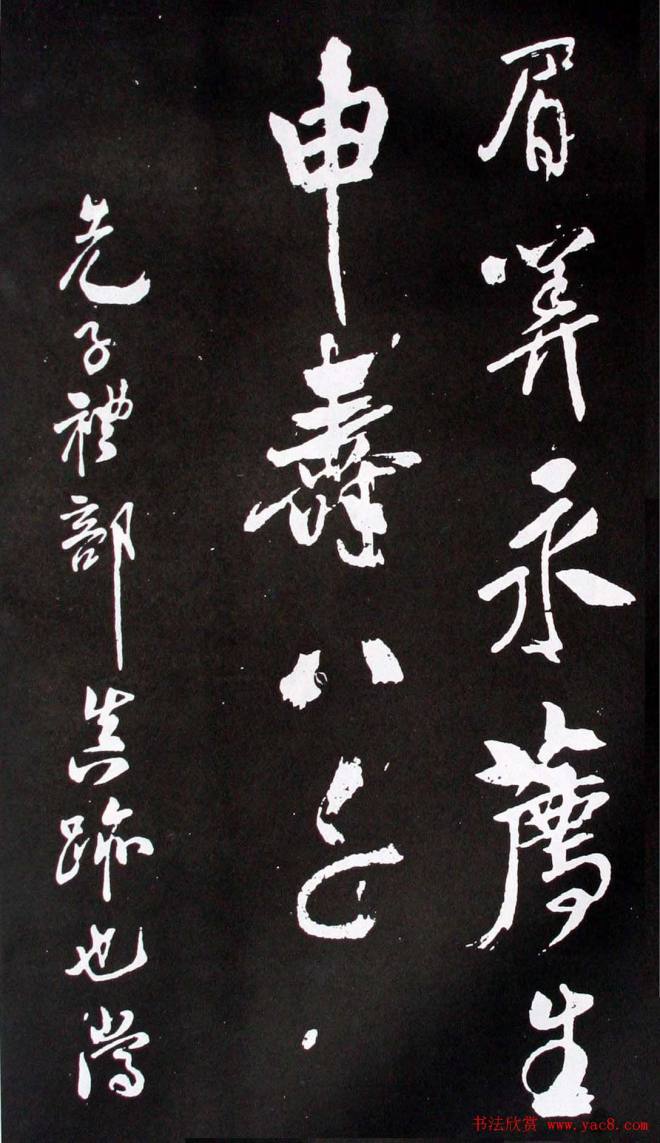 眉算永薦生
申壽八千
先子禮部真跡也嘗
书法欣赏 www.yac8.com